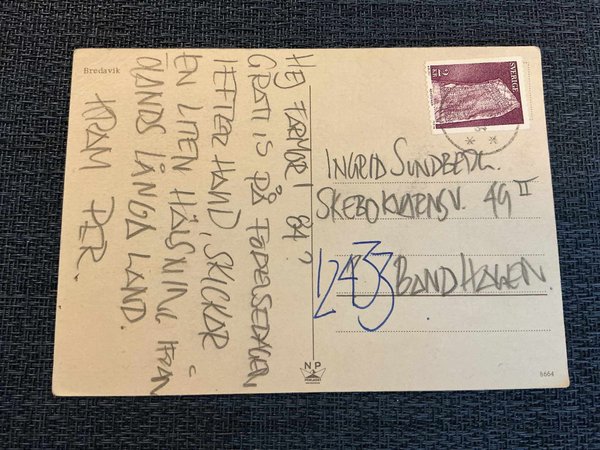 Bredavik
HEJ FARMOR!
GRATTIS PÅ FÖDELSEDAGEN
I EFTER HAND, SKICKAR
EN LITEN HÄLSNING FRÅN
ÖLANDS LÅNGA LAND.
KRAM PER.
SVERIGE
INGRID SUNDBERG.
SKEBOKVARNSV. 49 II
12433 BANDHAGEN
NP
h664